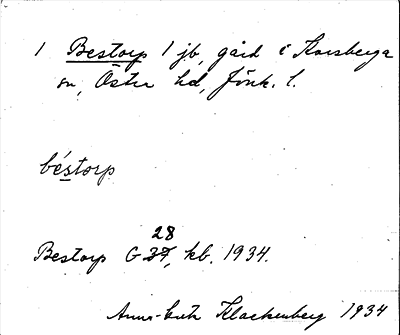 1 Bestorp 1 jb, gård i Korsberga
sn, Östra hd, Jönk. l.
béstorp
28
Bestorp G 27, kb. 1934.
Anna-Greta Klackenberg 1934